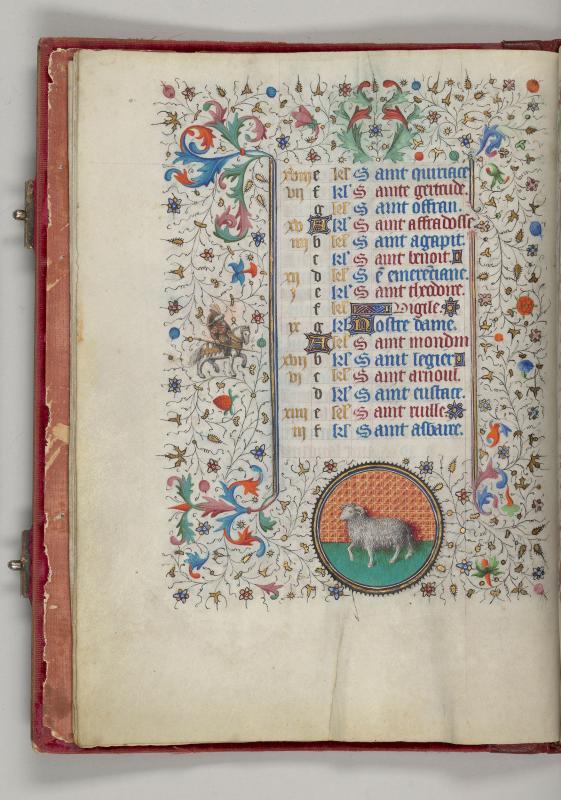 xviii e kl' Saint quiriace
vii f kl' Sainte gertrude.
g kl' Saint offran.
xv A kl' Saint affradosse
iiii b kl' Saint agapit.
c kl' Saint benoit.
xii d kl' Se emerenciane.
i e kl' Saint theodore.
f kl' Vigile.
ix g kl' Nostre dame.
A kl' Saint mondin
xvii b kl' Saint legier
vi c kl' Saint arnoul.
d kl' Saint eustace.
xiiii e kl' Saint rulle.
iii f kl' Saint asbaire.